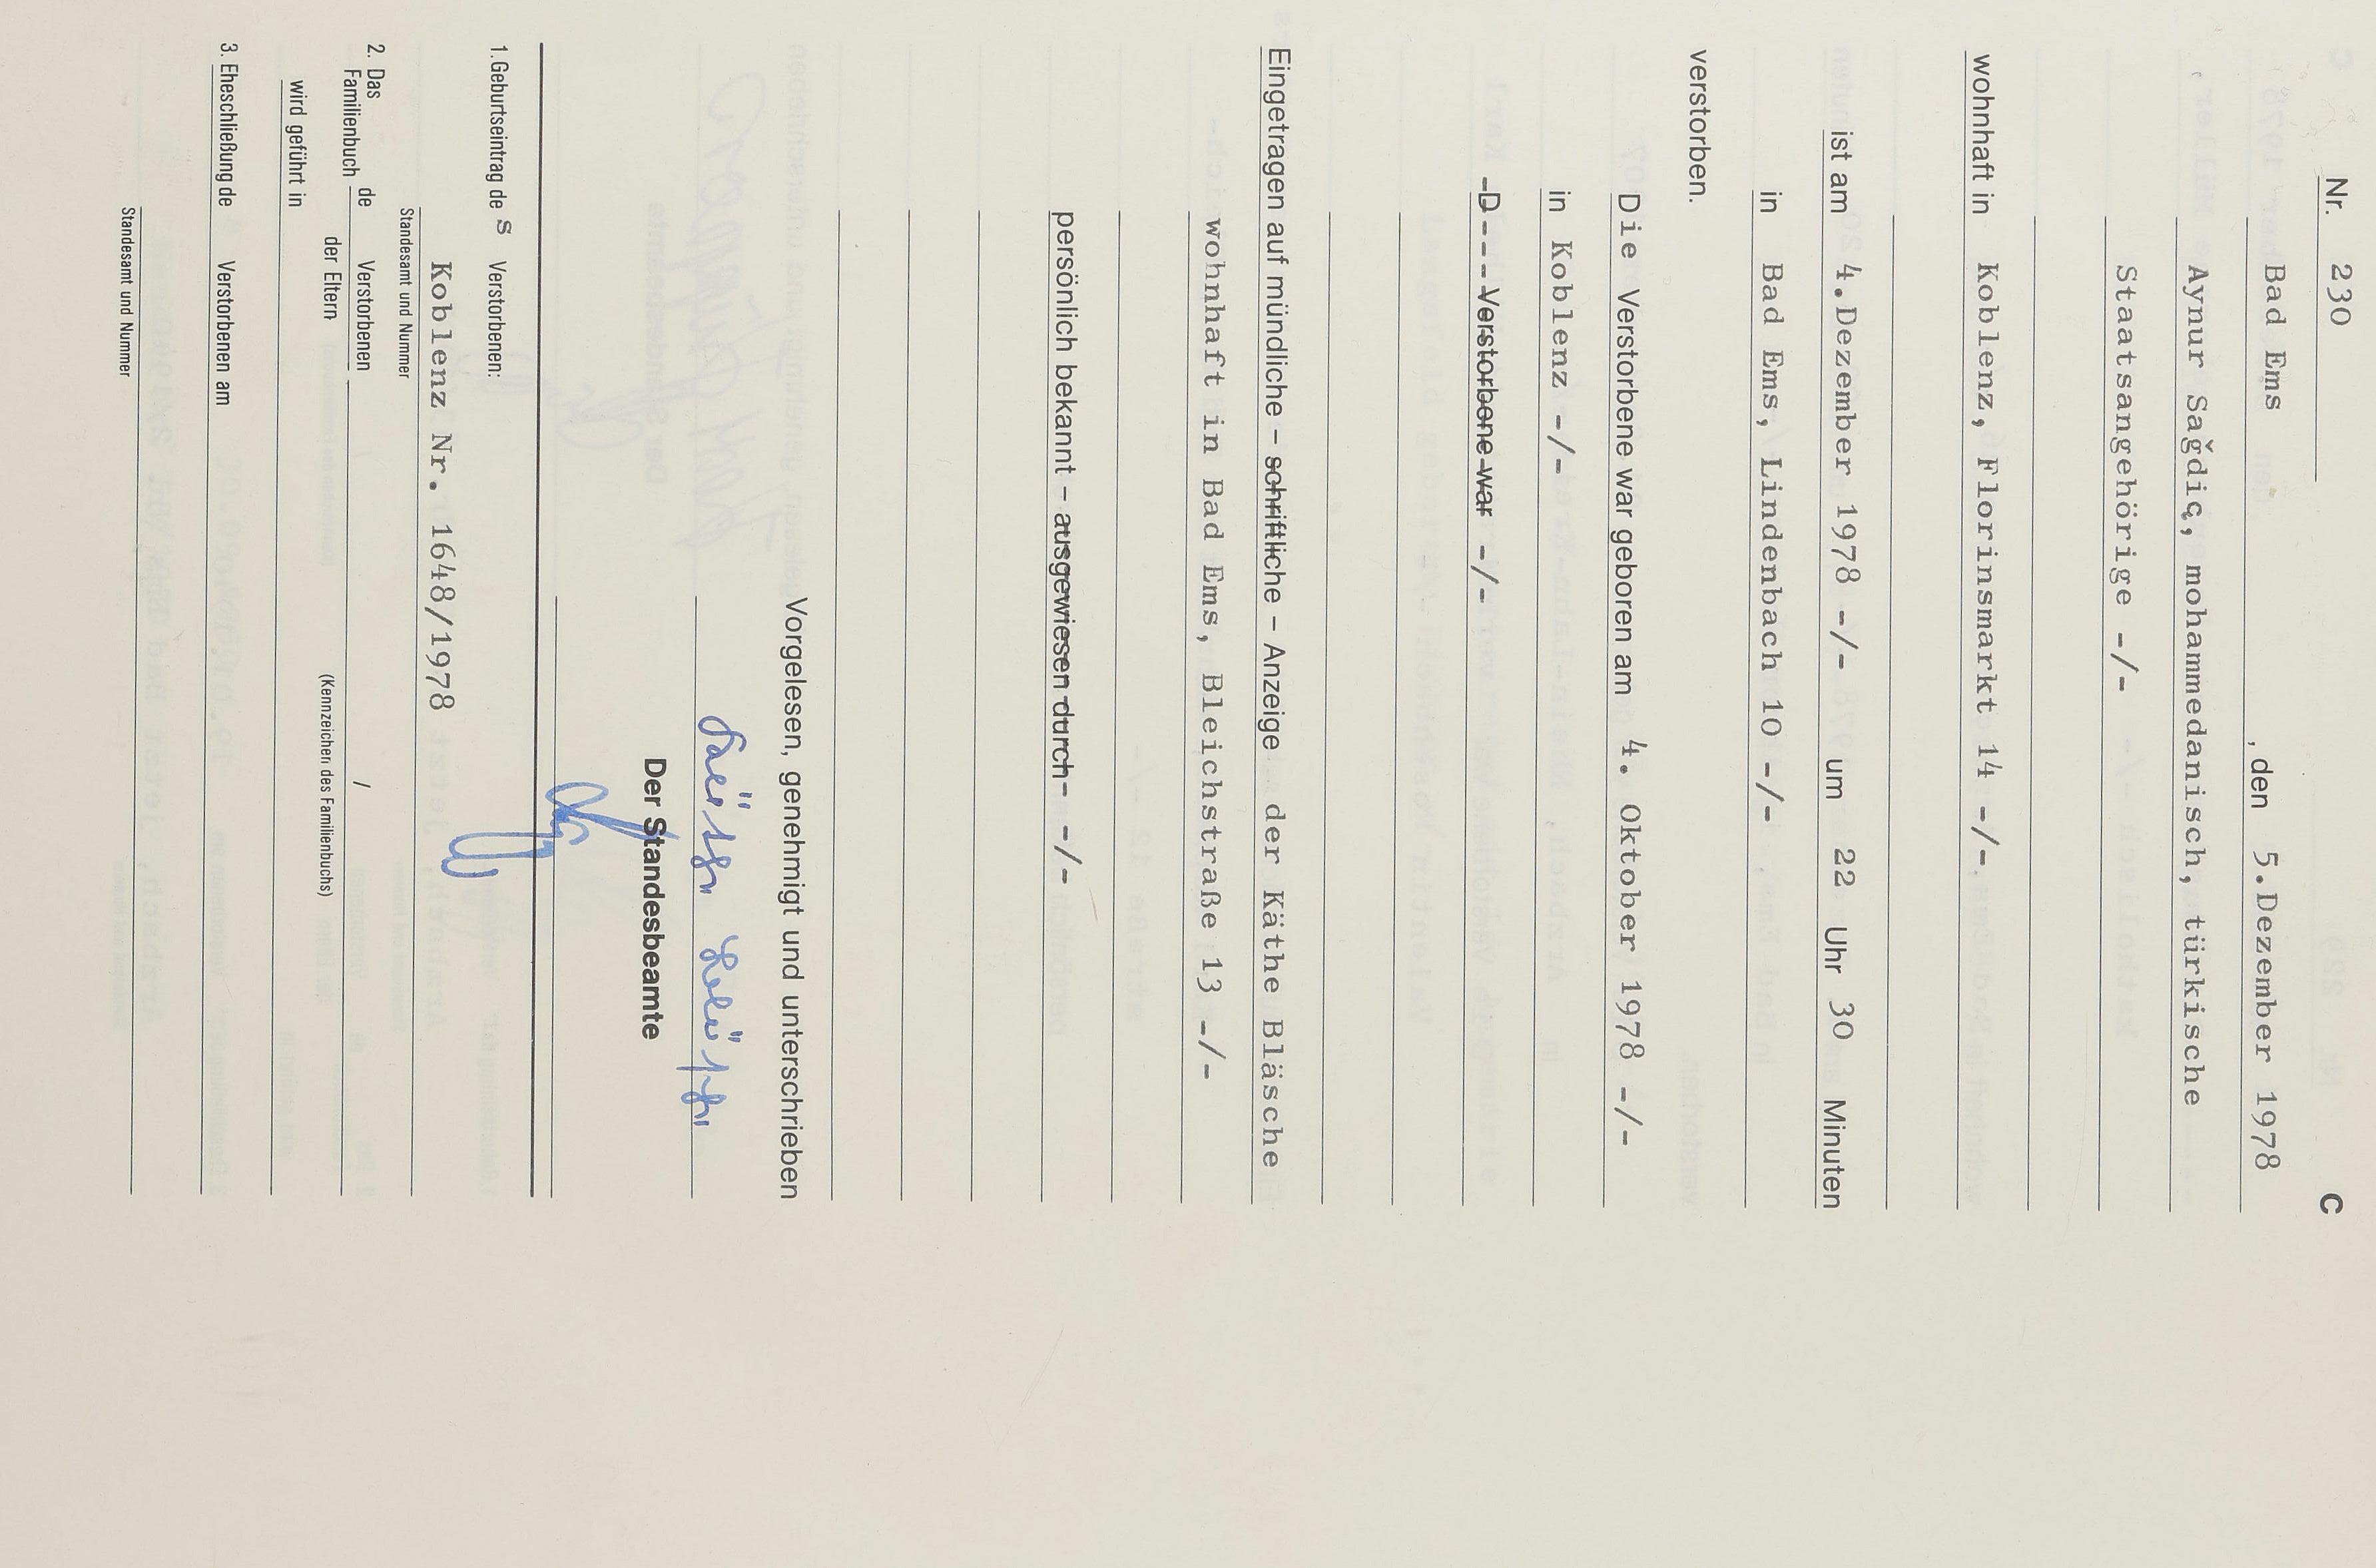 Nr. 230 C
Bad Ems, den 5.Dezember 1978
Aynur Sağdiç, mohammedanisch, türkische
Staatsangehörige -/-
wohnhaft in Koblenz, Florinsmarkt 14 -/-
ist am 4.Dezember 1978 -/- um 22 Uhr 30 Minuten
in Bad Ems, Lindenbach 10 -/-
verstorben.
Die Verstorbene war geboren am 4. Oktober 1978 -/-
in Koblenz -/-
-D---- Verstorbene war -/-
Eingetragen auf mündliche – schriftliche – Anzeige der Käthe Bläsche
wohnhaft in Bad Ems, Bleichstraße 13 -/-
persönlich bekannt – ausgewiesen durch- -/-
Vorgelesen, genehmigt und unterschrieben
Der Standesbeamte
1. Geburtseintrag des Verstorbenen:
Koblenz Nr. 1648/1978
Standesamt und Nummer
2. Das Familienbuch de Verstorbenen /
der Eltern (Kennzeichen des Familienbuchs)
wird geführt in
3. Eheschließung de Verstorbenen am
Standesamt und Nummer